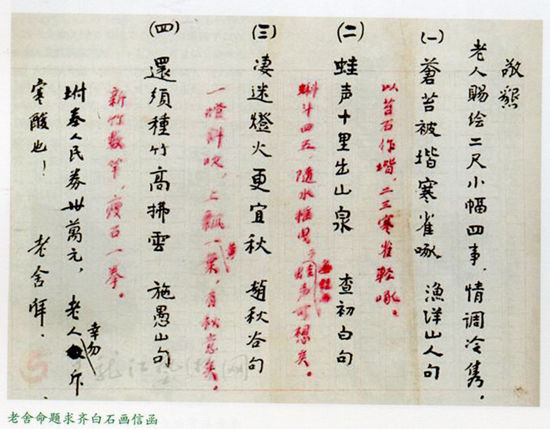 敬懇
老人赐绘二尺小幅四事,情调冷雋。
(一) 蒼苔被堦寒雀啄 漁洋山人句
以苔石作堦,二三寒雀轻啄。
(二) 蛙声十里出山泉 查初白句
蝌斗四五,随水摇曳,蛙声可想矣。
(三) 凄迷燈火更宜秋 趙秋谷句
一燈斜吹,上飄一黄葉,有秋意矣。
(四) 還須種竹高拂雲 施愚山句
新竹數竿,瘦石一拳。
坿奉人民券卅萬元,老人幸勿斥
寒酸也! 老舍拜.
老舍命题求齐白石画信函